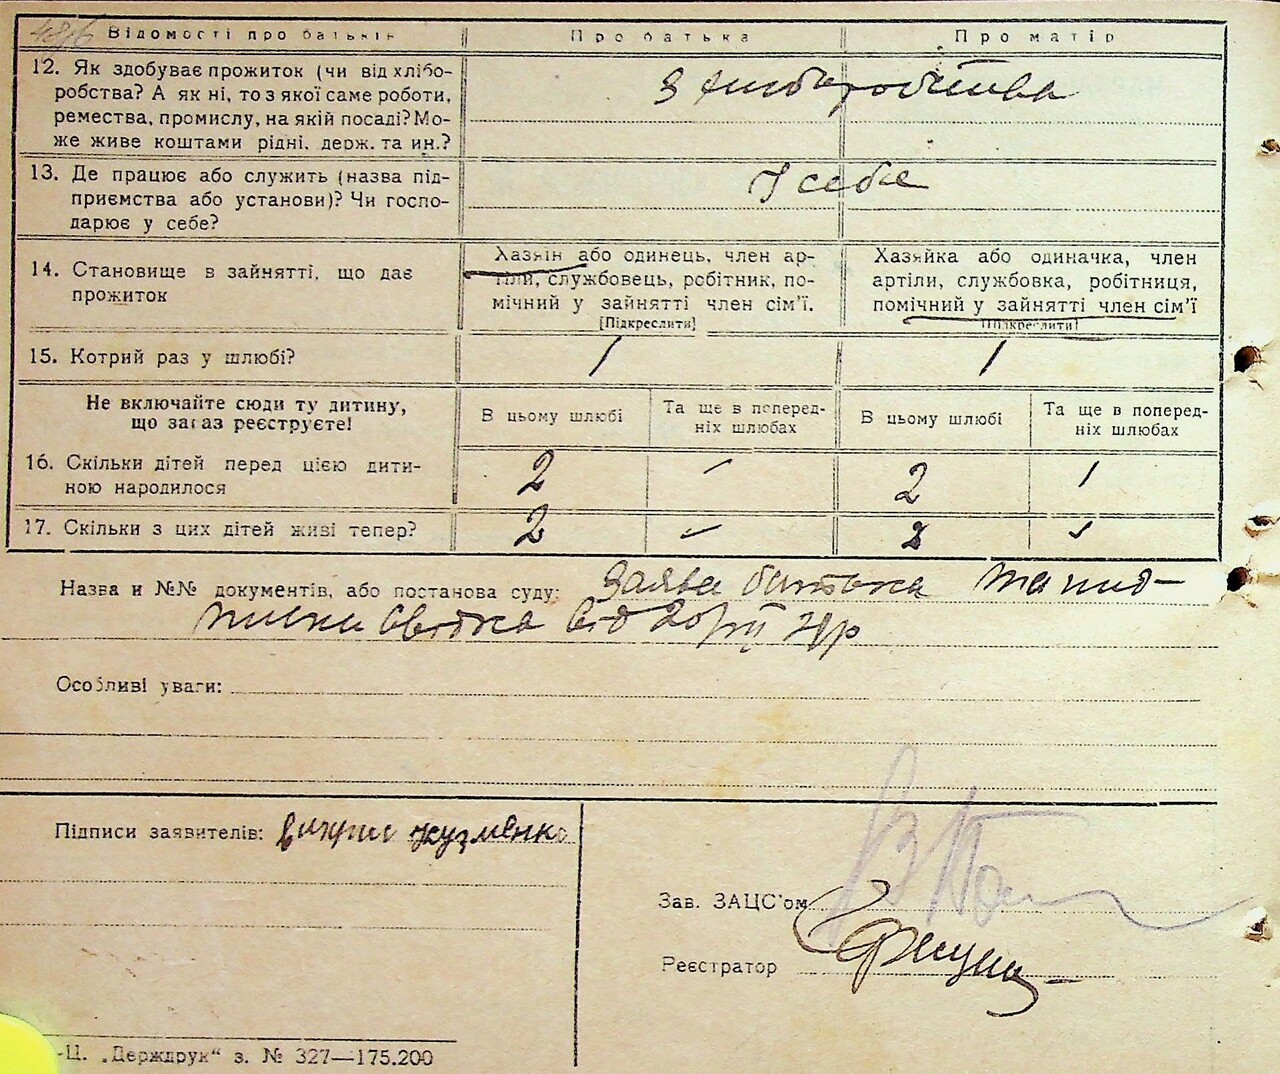 486 Відомості про батьків Про батька Про матір
12. Як здобуває прожиток (чи від хлібо-
робства? А як ні, то з якої саме роботи,
ремества, промислу, на якій посаді? Мо-
же живе коштами рідні, держ. та ин.?
З хліборобства
13. Де працює або служить (назва під-
приємства або установи)? Чи госпо-
дарює у себе?
У себе
14. Становище в зайнятті, що дає
прожиток
Хазяїн або одинець, член ар-
тіли, службовець, робітник, по-
мічний у зайнятті член сім'ї.
[Підкреслити]
Хазяйка або одиначка, член
артіли, службовка, робітниця,
помічний у зайнятті член сім'ї
[Підкреслити]
15. Котрий раз у шлюбі? 1 1
Не включайте сюди ту дитину,
що зараз реєструєте!
В цьому шлюбі
Та ще в поперед-
ніх шлюбах
В цьому шлюбі
Та ще в поперед-
ніх шлюбах
16. Скільки дітей перед цією дити-
ною народилося
2 – 2
17. Скільки з цих дітей живі тепер? 2 – 2
Назва и №№ документів, або постанова суду: Заява батька та під-
писки свідка від 20/VII
Особливі уваги:
Підписи заявителів: Кузменко
Зав. ЗАЦС'ом
Реєстратор
-Ц. „Держдрук“ з. № 327—175.200